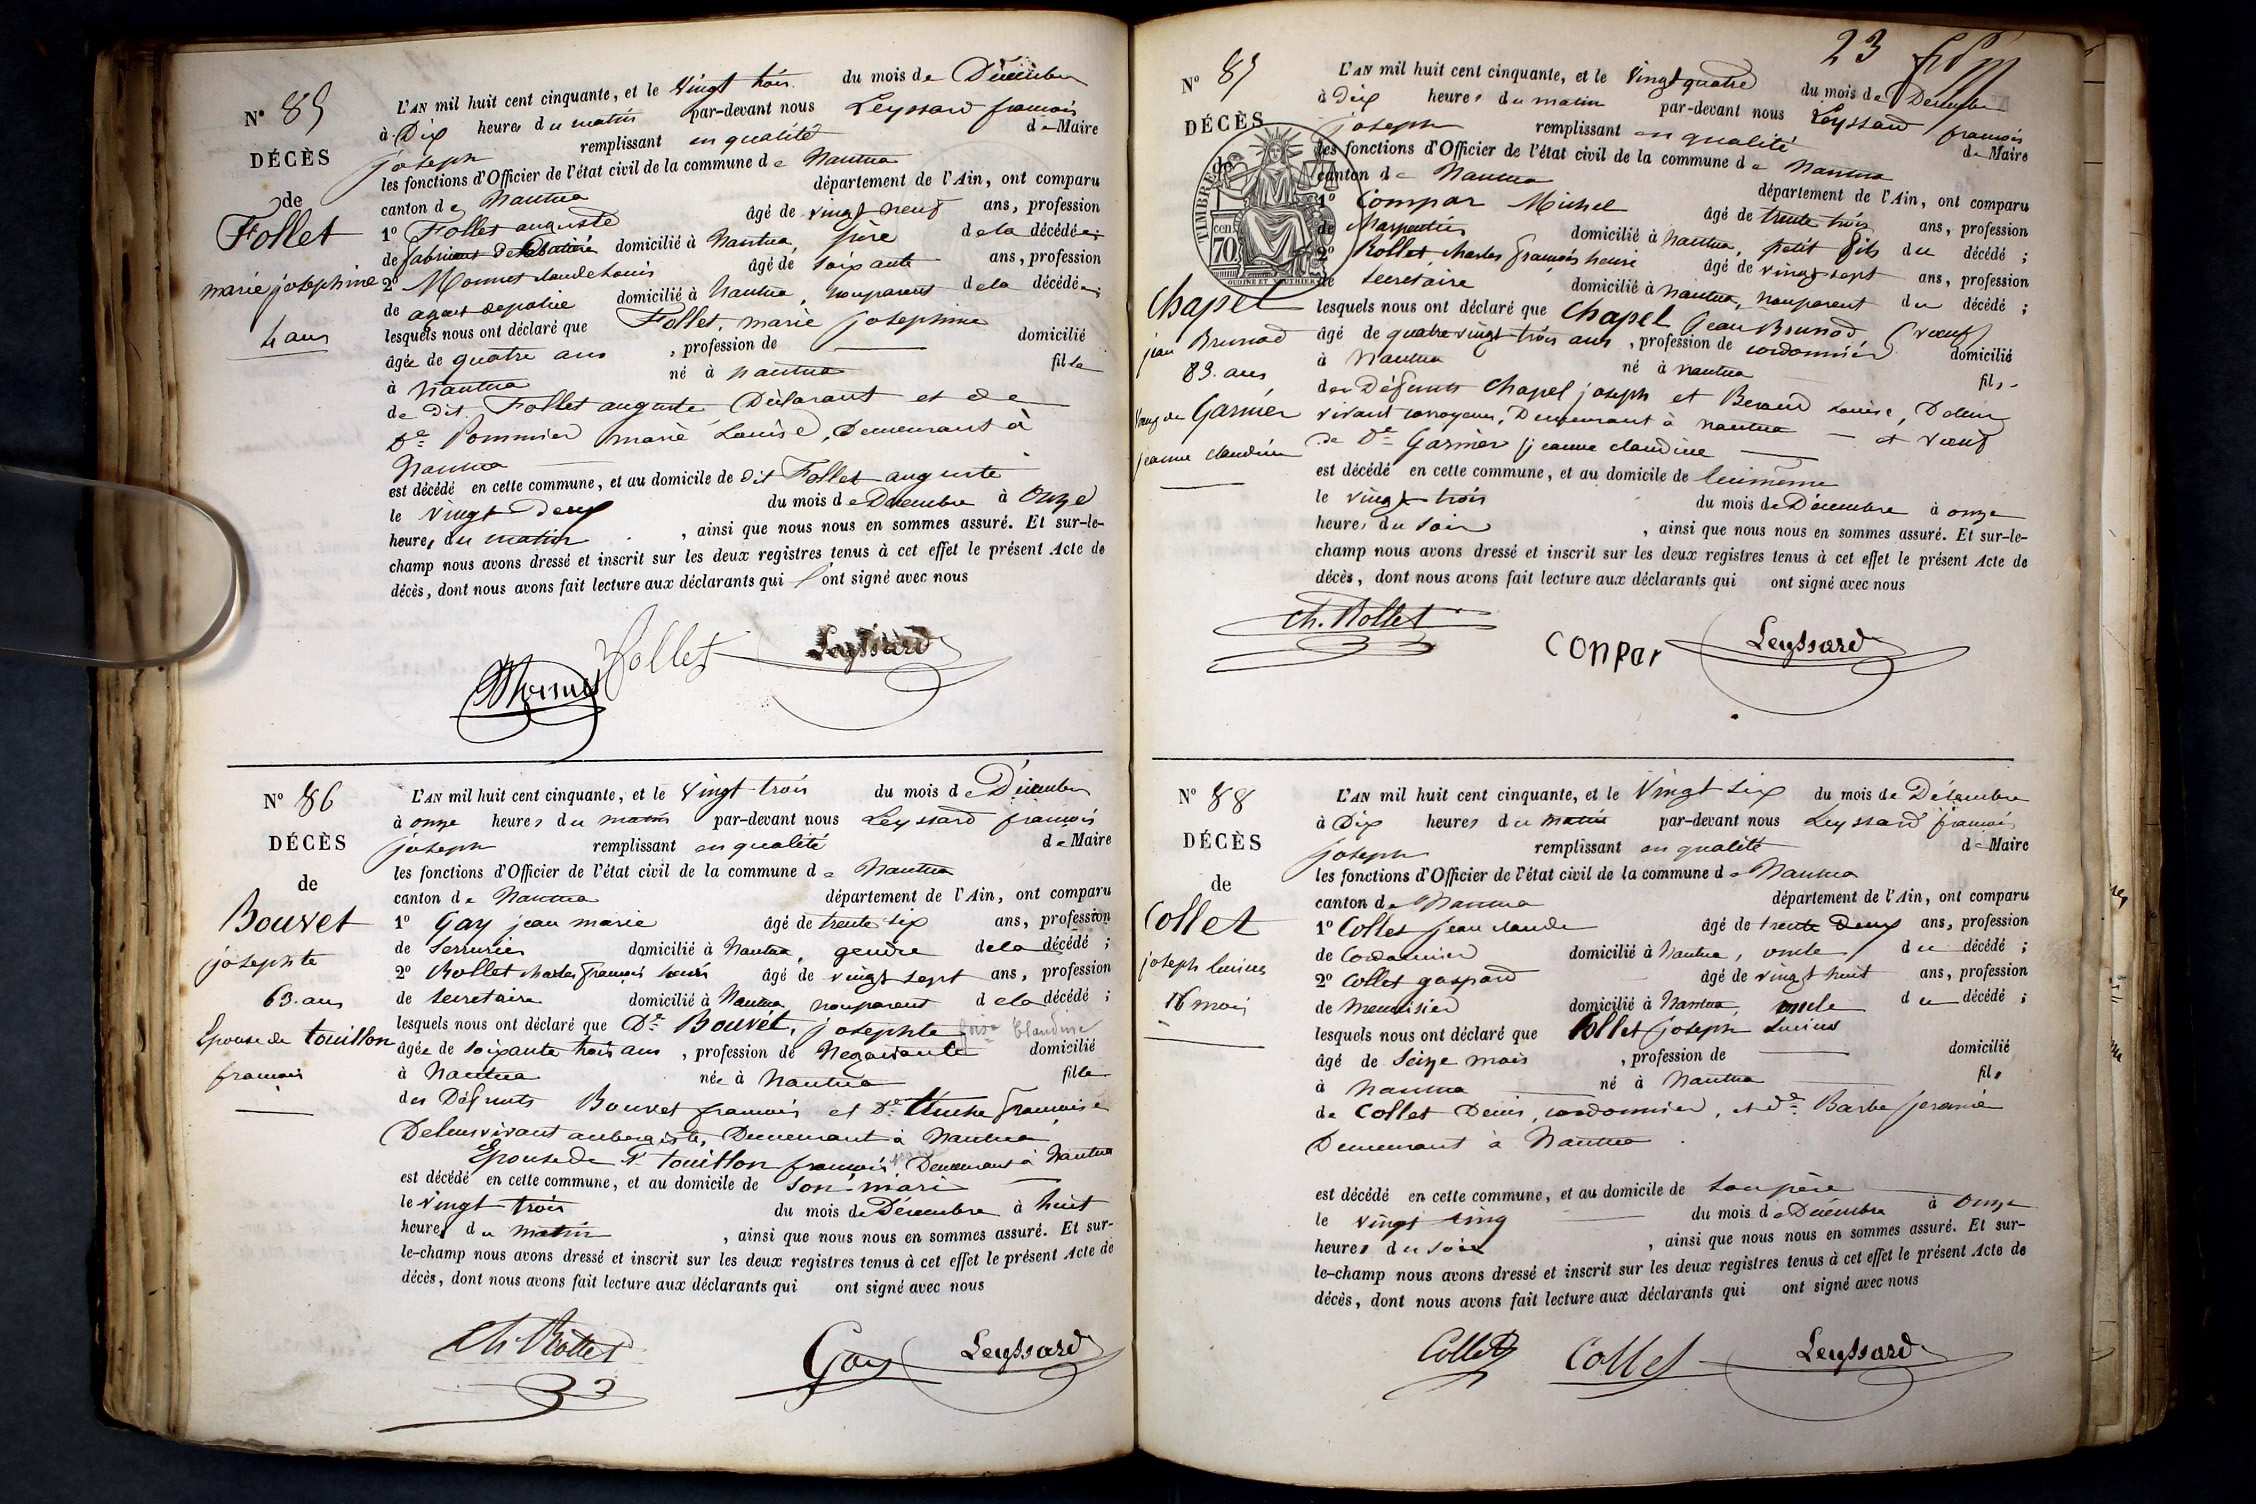 N° 85
DÉCÈS
de
Follet
marie josephine
4 ans
L'AN mil huit cent cinquante, et le vingt trois du mois de Décembre
à Dix heures du matin par-devant nous Leyssard françois
joseph remplissant en qualité de Maire
les fonctions d'Officier de l'état civil de la commune de Nantua
canton de Nantua département de l'Ain, ont comparu
1° Follet auguste âgé de vingt neuf ans, profession
de fabricant de domicilié à Nantua, père de la décédée;
2° Monnet claude Louis âgé de soixante ans, profession
de agent de police domicilié à Nantua, non parent de la décédée;
lesquels nous ont déclaré que Follet, marie josephine
âgée de quatre ans, profession de — domicilié
à Nantua né à nantua fille
de dit Follet auguste Déclarant et de
De Pommier marie Louise, Demeurant à
Nantua
est décédé en cette commune, et au domicile de dit Follet auguste
le vingt Deux du mois de Décembre à Onze
heures du matin, ainsi que nous nous en sommes assuré. Et sur-le-
champ nous avons dressé et inscrit sur les deux registres tenus à cet effet le présent Acte de
décès, dont nous avons fait lecture aux déclarants qui l'ont signé avec nous
Monnet Follet Leyssard
N° 86
DÉCÈS
de
Bouvet
josephte
63 ans
Epouse de touillon
francois
L'AN mil huit cent cinquante, et le Vingt trois du mois de Décembre
à onze heures du matin par-devant nous Leyssard françois
joseph remplissant en qualité de Maire
les fonctions d'Officier de l'état civil de la commune de Nantua
canton de Nantua département de l'Ain, ont comparu
1° Gay jean marie âgé de trente six ans, profession
de Serrurier domicilié à Nantua, gendre de la décédé;
2° Rollet charles françois âgé de vingt sept ans, profession
de secretaire domicilié à Nantua, non parent de la décédé;
lesquels nous ont déclaré que De Bouvet, josephte Claudine
âgée de soixante trois ans, profession de Negociante domicilié
à Nantua née à Nantua fille
des Défunts Bouvet françois et De françoise
De leur vivant aubergiste, Demeurant à Nantua
Epouse de Sr touillon françois Demeurant à Nantua
est décédé en cette commune, et au domicile de Son mari
le vingt trois du mois de Décembre à huit
heures du matin, ainsi que nous nous en sommes assuré. Et sur-
le-champ nous avons dressé et inscrit sur les deux registres tenus à cet effet le présent Acte de
décès, dont nous avons fait lecture aux déclarants qui ont signé avec nous
Ch. Rollet Gay Leyssard
23
N° 87
DÉCÈS
de
Chapel
jean Brunod
83 ans
veuf de Garnier
jeanne claudine
TIMBRE
70 cen
OUDINÉ ET GAUTHIER
L'AN mil huit cent cinquante, et le vingt quatre du mois de Décembre
à dix heures du matin par-devant nous Leyssard françois
joseph remplissant en qualité de Maire
les fonctions d'Officier de l'état civil de la commune de Nantua
canton de Nantua département de l'Ain, ont comparu
1° Compar Michel âgé de trente trois ans, profession
de charpentier domicilié à Nantua, petit fils du décédé;
2° Rollet charles françois henri âgé de vingt sept ans, profession
de secretaire domicilié à nantua, non parent du décédé;
lesquels nous ont déclaré que Chapel jean Brunod (veuf)
âgé de quatre vingt trois ans, profession de cordonnier domicilié
à Nantua né à nantua fils
des Défunts Chapel joseph et Beraud Louise, De leur
vivant corroyeur, Demeurant à nantua — et veuf
de De Garnier jeanne claudine
est décédé en cette commune, et au domicile de lui même
le vingt trois du mois de Décembre à onze
heures du soir, ainsi que nous nous en sommes assuré. Et sur-le-
champ nous avons dressé et inscrit sur les deux registres tenus à cet effet le présent Acte de
décès, dont nous avons fait lecture aux déclarants qui ont signé avec nous
Ch. Rollet conpar Leyssard
N° 88
DÉCÈS
de
Collet
joseph lucius
16 mois
L'AN mil huit cent cinquante, et le Vingt six du mois de Décembre
à Dix heures du matin par-devant nous Leyssard françois
joseph remplissant en qualité de Maire
les fonctions d'Officier de l'état civil de la commune de Nantua
canton de Nantua département de l'Ain, ont comparu
1° Collet jean claude âgé de trente Deux ans, profession
de Cordonnier domicilié à Nantua, oncle du décédé;
2° Collet gaspard âgé de vingt huit ans, profession
de Menuisier domicilié à Nantua, oncle du décédé;
lesquels nous ont déclaré que Collet joseph Lucius
âgé de Seize mois, profession de — domicilié
à Nantua né à Nantua fils
de Collet Denis, cordonnier, et de De Barbe
Demeurant à Nantua
est décédé en cette commune, et au domicile de Son père
le vingt cinq du mois de Décembre à Onze
heures du soir, ainsi que nous nous en sommes assuré. Et sur-
le-champ nous avons dressé et inscrit sur les deux registres tenus à cet effet le présent Acte de
décès, dont nous avons fait lecture aux déclarants qui ont signé avec nous
Collet Collet Leyssard